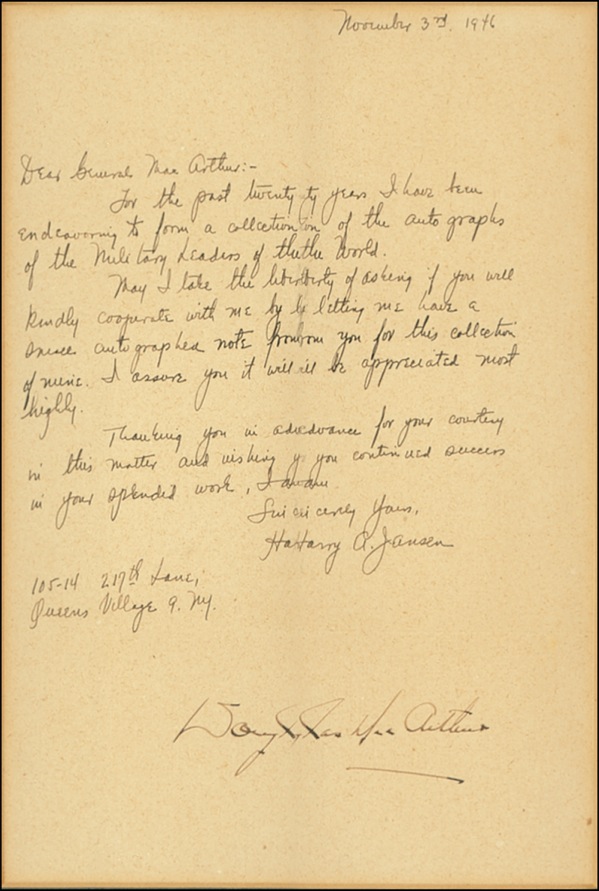 November 3rd, 1946
Dear General Mac Arthur:-
For the past twenty ty years I have been
endeavoring to form a collectionion of the autographs
of the Military Leaders of thethe World.
May I take the liberliberty of asking if you will
kindly cooperate with me by by letting me have a
autographed note fromrom you for this collection
of mine. I assure you it will ill be appreciated most
highly.
Thanking you in adadvance for your courtesy
in this matter and wishing y you continued success
in your splendid work, I amam
Sincicerely Yours,
HaHarry A. Jansen
105-14 217th Lane,
Queens Village 9. N.Y.
Douglas MacArthur